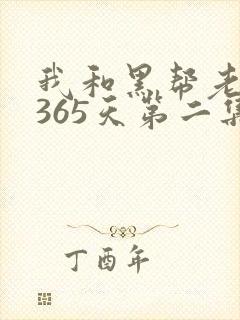 我和黑帮老
365天第二集
丁酉年